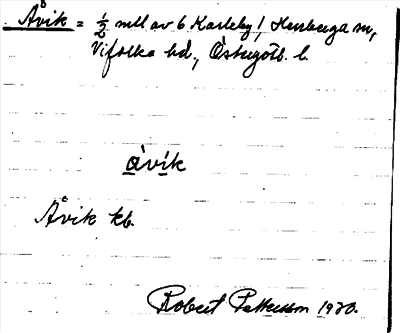 Åvik = ½ mtl av 6 Karleby, Herrberga sn,
Vifolka hd., Östergötl. l.
àvík
Åvik kb.
Robert Pettersson 1920.